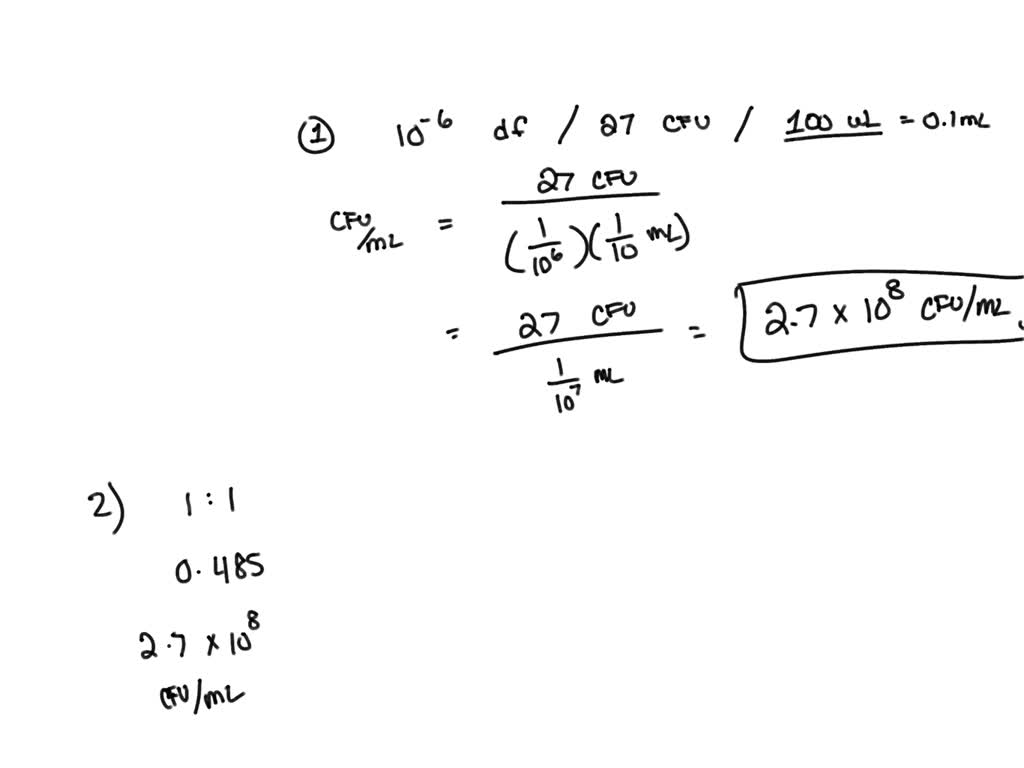 ① 10⁻⁶ df / 27 CFU / 100 uL = 0.1mL
27 CFU
CFU/mL = (1/10⁶)(1/10 mL)
= 27 CFU / 1/10⁷ mL = 2.7 x 10⁸ CFU/mL
2) 1:1
0.485
2.7 x 10⁸
CFU/mL